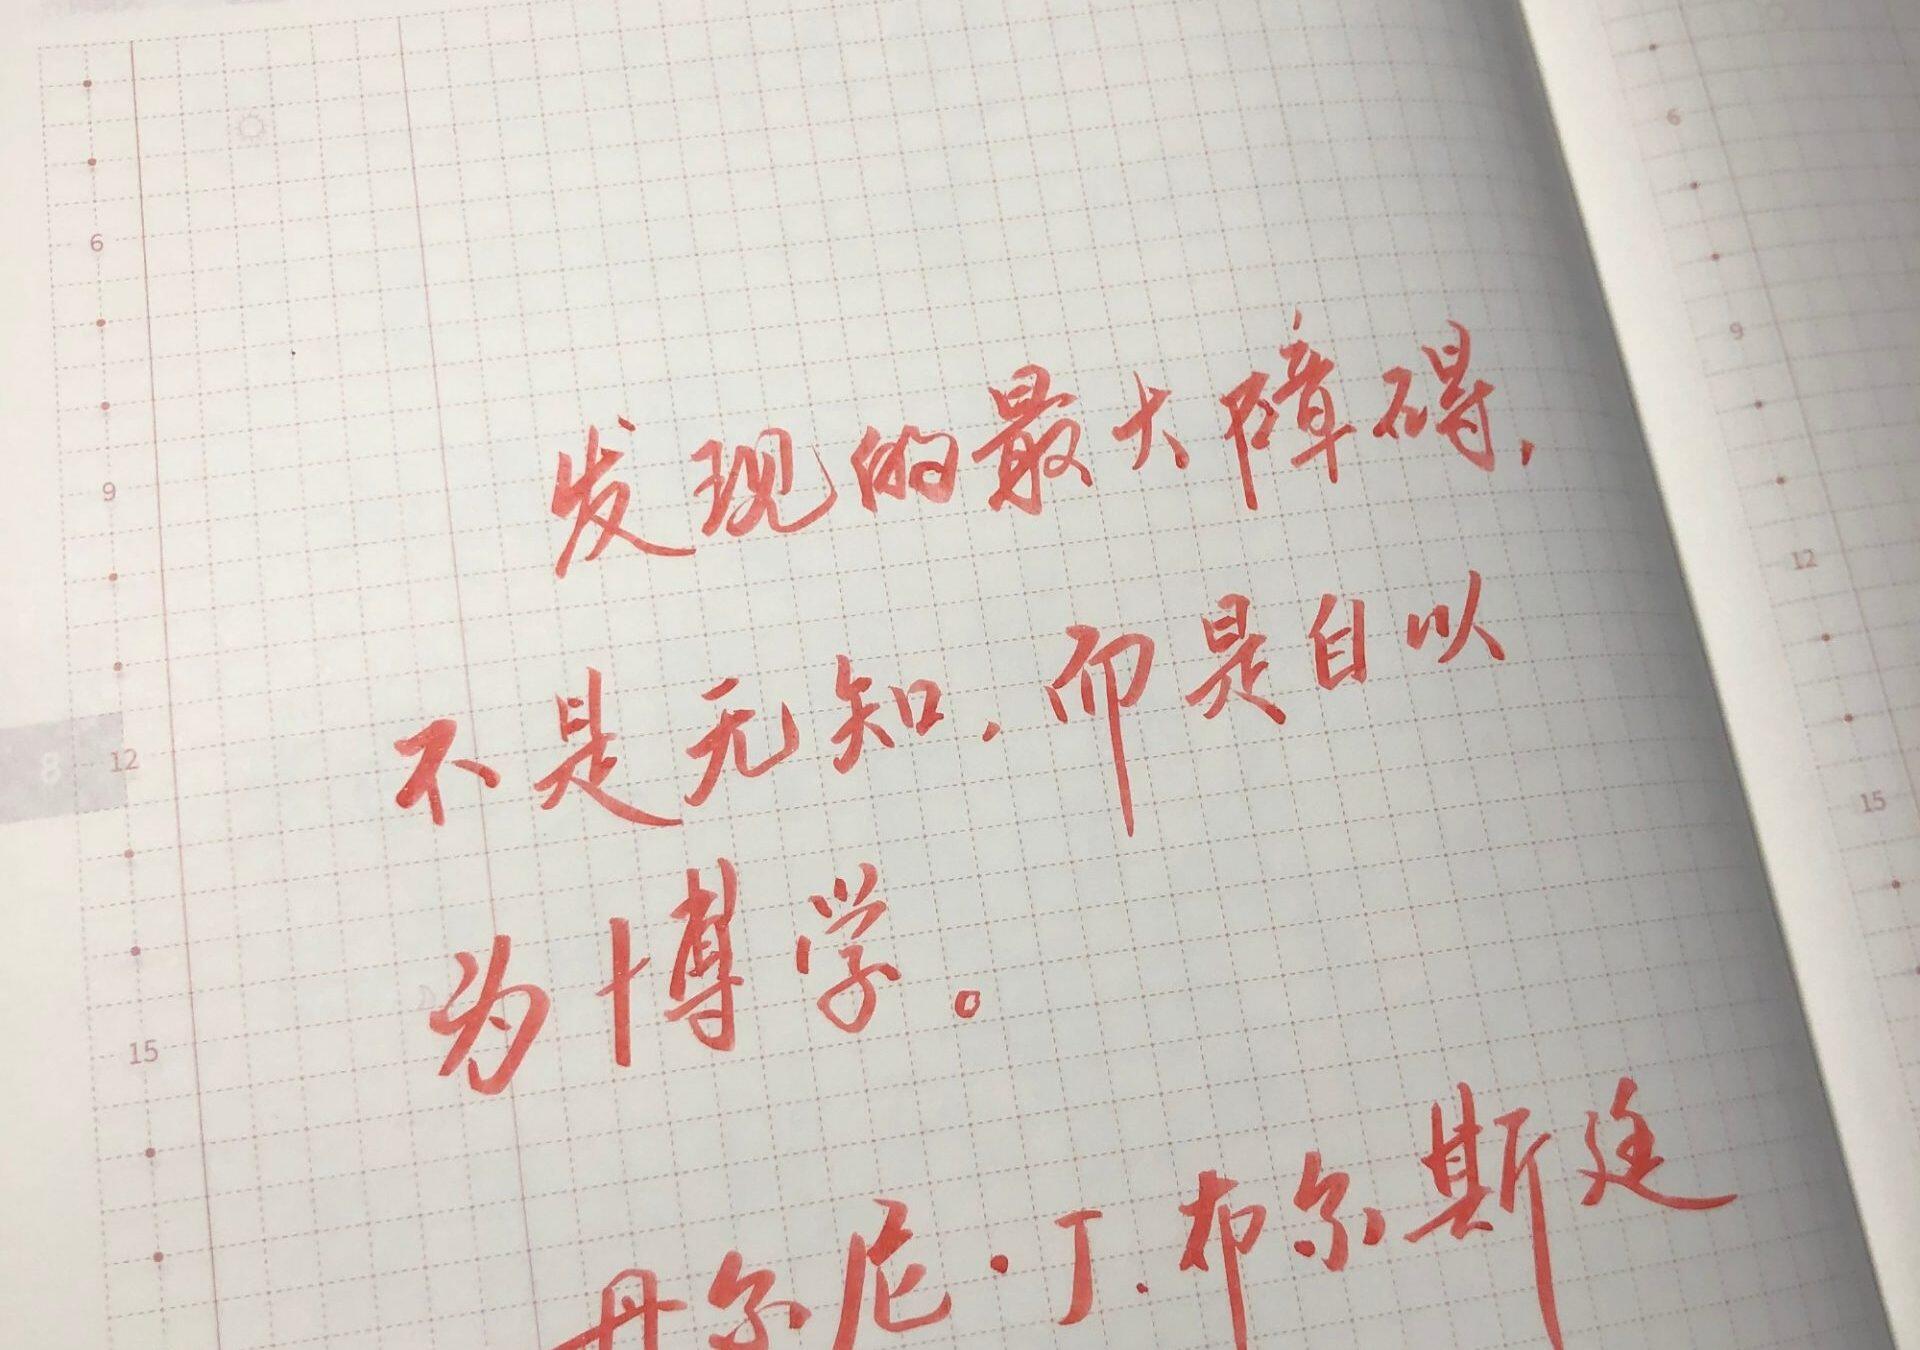 发现的最大障碍，
不是无知，而是自以
为博学。
丹尔尼·J.布尔斯廷
6
9
12
15
8
6
9
12
15